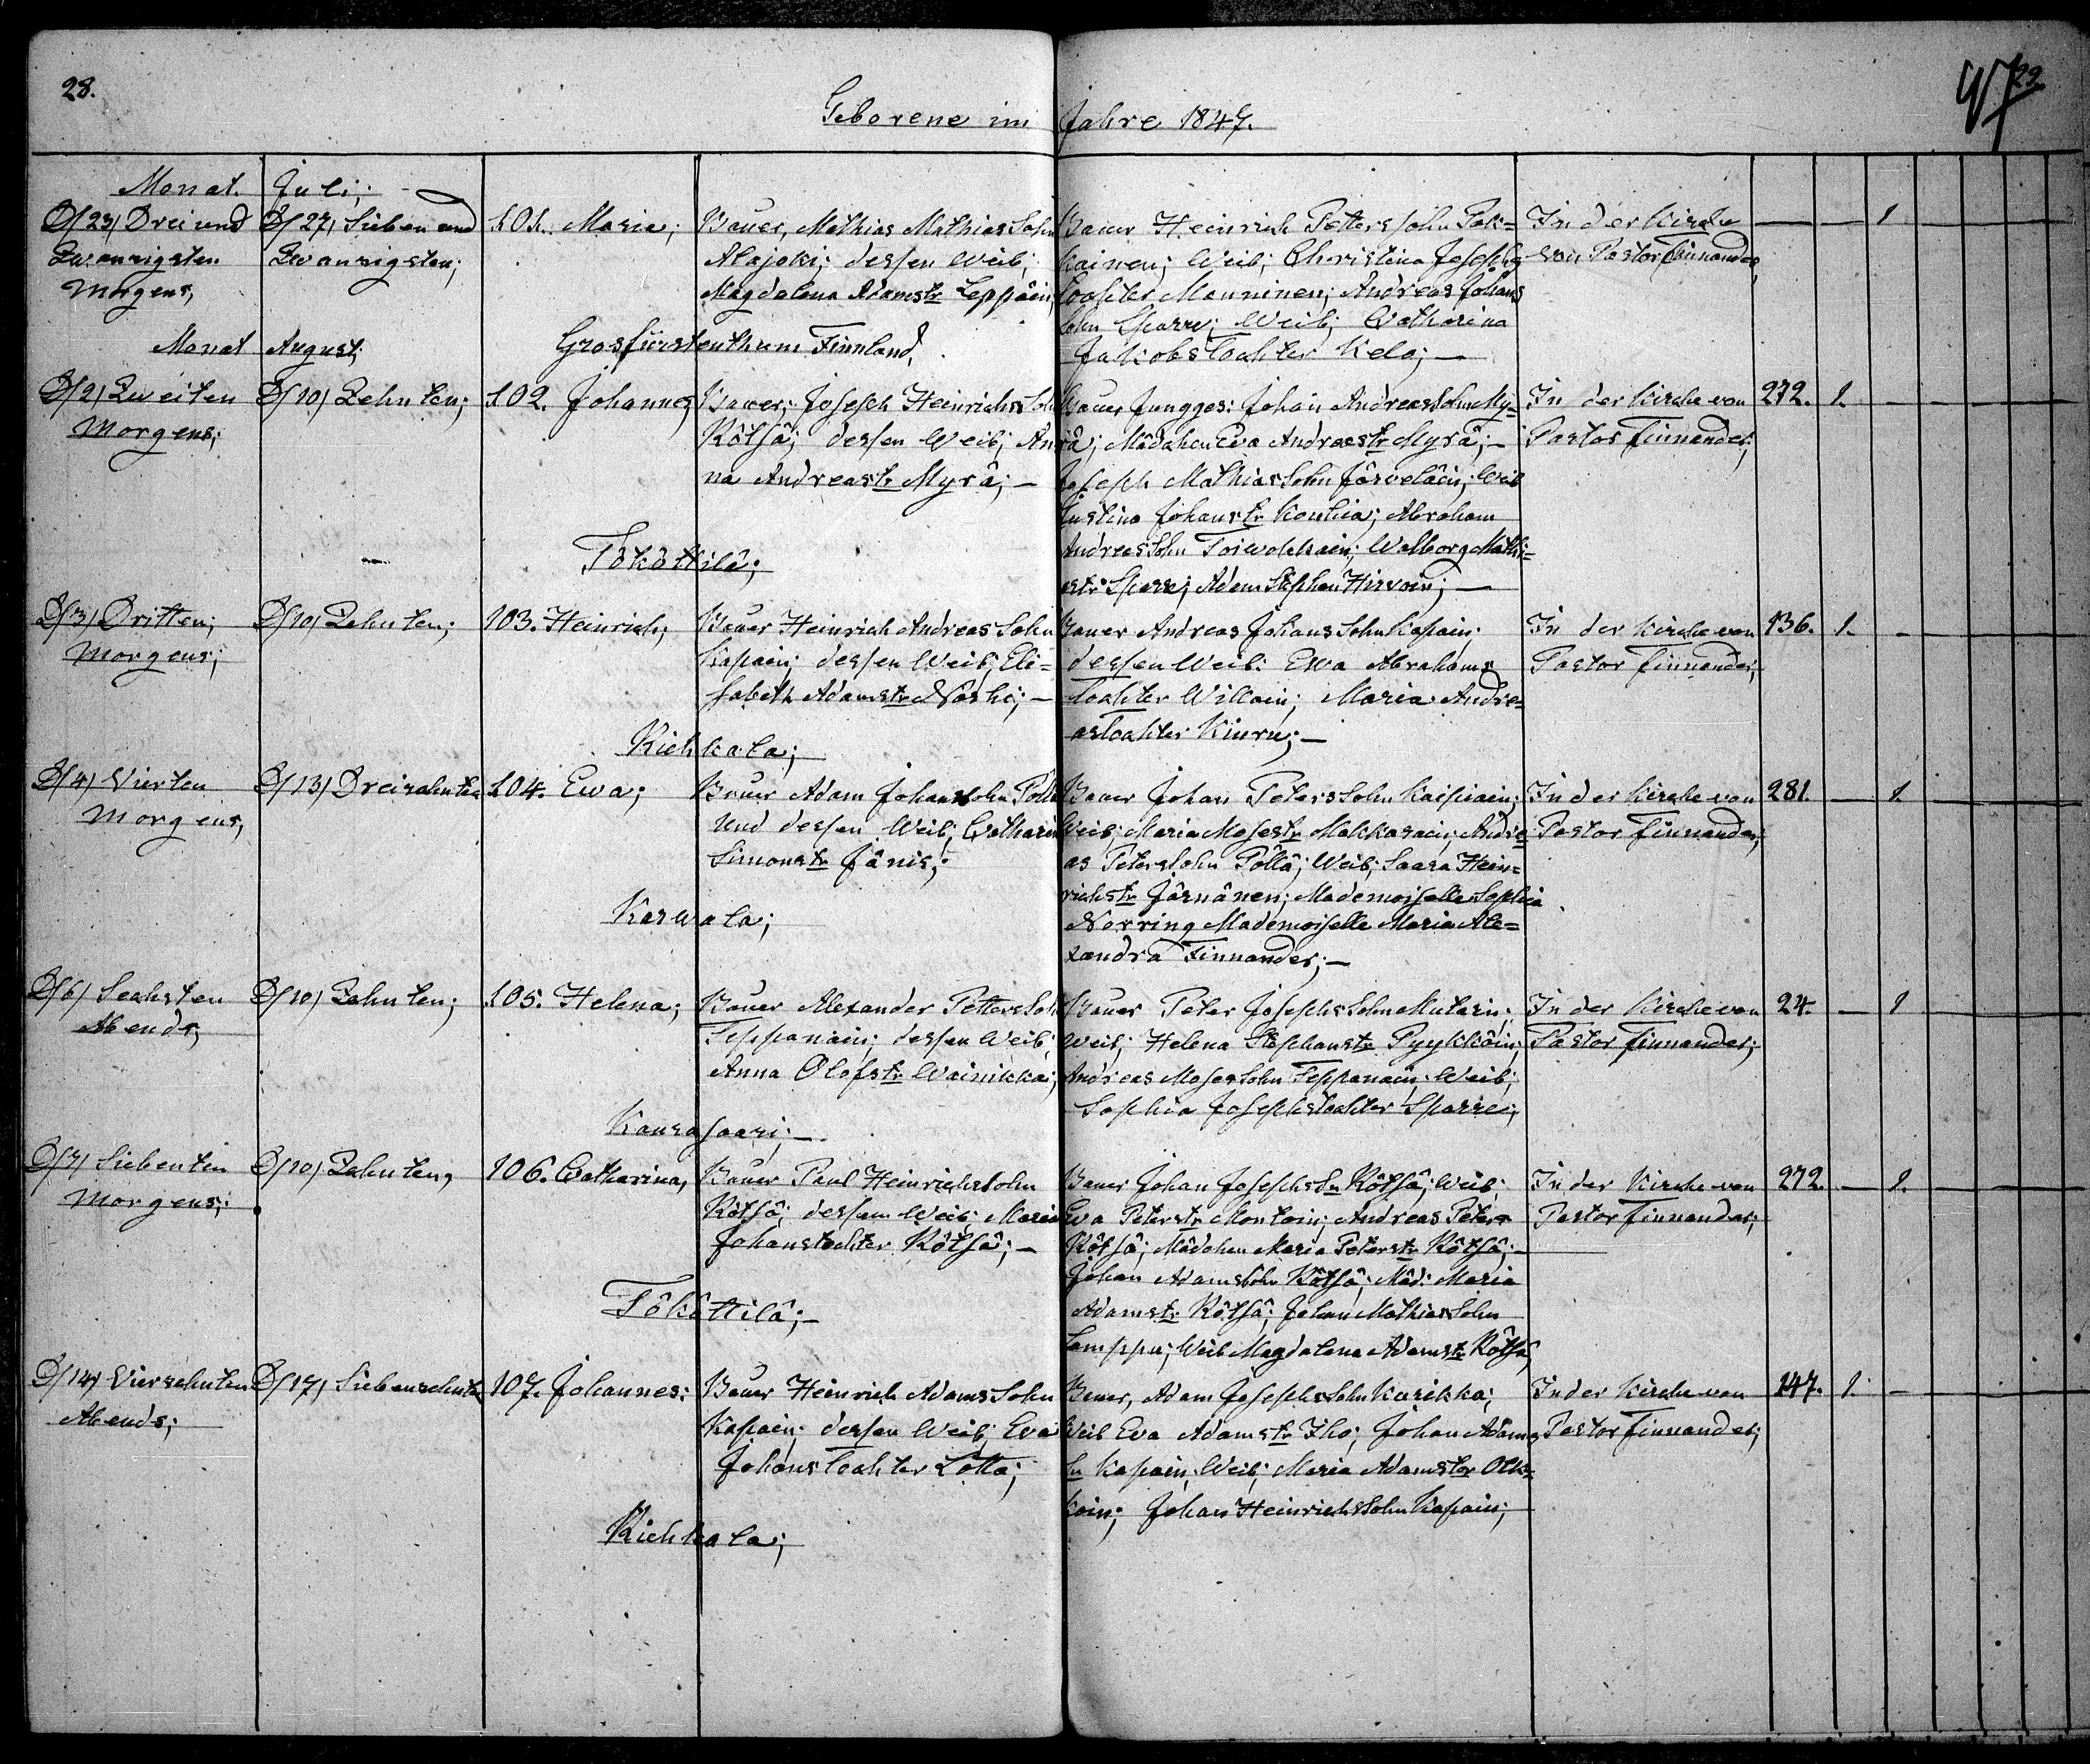 28.
29
47
Geborene im Jahre 1847.
Monat. Juli;
D/23/ Drei und D/27/ Sieben und 101. Maria; Bauer, Mathias Mathias Sohn Bauer Heinrich Petters Sohn Pak= In der Kirche — — 1
Zwanzigsten Zwanzigsten; Alajoki; dessen Weib; kainen; Weib; Christina Josephs von Pastor Finnander,
Morgens, Magdalena Adamstr Leppäin; tochter Manninen; Andreas Johans
Sohn Sparre; Weib; Catharina
Grosfürstenthum Finnland, Jakobs Tochter Kelo; —
Monat August;
D/2/ Zweiten D/10/ Zehnten; 102. Johannes; Bauer; Joseph Heinrichs Sohn Bauer Jungges: Johan Andreas Sohn My= In der Kirche von 272. 1. —
Morgens; Kötsä; dessen Weib; An rä; Mädchen Eva Andreastr Myrä; — Pastor Finnander;
na Andreastr Myrä; — Joseph Mathias Sohn Järveläin; Weib
Justina Johanstr Kouhia; Abraham
Tököttilä; Andreas Sohn Toiwokkain; Walborg Mathi=
astr Sparre; Adam Stephan Hirvoin; —
D/3/ Dritten; D/10/ Zehnten; 103. Heinrich; Bauer Heinrich Andreas Sohn Bauer Andreas Johans Sohn Kapain; In der Kirche von 136. 1. —
Morgens; Kapain; dessen Weib; Eli= dessen Weib: Ewa Abrahams Pastor Finnander;
sabeth Adamstr Noski; — tochter Willain; Maria Andre=
Kichkala; astochter Kiuru; —
D/4/ Vierten D/13/ Dreizehnten 104. Ewa; Bauer Adam Johans Sohn Pöllä Bauer Johan Peters Sohn Kaipiain; In der Kirche von 281. — 1.
Morgens, und dessen Weib; Catharin Weib; Maria Mosestr Mekkarain; Andre Pastor Finnander;
Simonstr Jänis; as Peters Sohn Pöllä; Weib; Saara Hein=
richstr Järnänen; Mademoiselle Sophia
Karwala; Norring Mademoiselle Maria Ale=
xandra Finnander; —
D/6/ Sechsten D/10/ Zehnten; 105. Helena; Bauer Alexander Petters Soh Bauer Peter Josephs Sohn Mutain; In der Kirche von 24. — 1
Abends; Teppanain; dessen Weib; Weib; Helena Stephanstr Pyykköin; Pastor Finnander;
Anna Olofstr Wainikka; Andreas Moses Sohn Teppanain; Weib;
Kaurasaari; — Sophia Josephstochter Sparre;
D/7/ Siebenten D/10/ Zehnten, 106. Catharina, Bauer Paul Heinrichs Sohn Bauer Johan Josephs Sn Kötsä; Weib; In der Kirche von 272. — 1.
Morgens; Kötsä; dessen Weib; Maria Eva Peterstr Montoin; Andreas Peter Pastor Finnander;
Johanstochter Kötsä; — Kötsä; Mädchen Maria Peterstr Kötsä; —
Johan Adams Sohn Kötsä; Mäd: Maria
Tököttilä; — Adamstr Kötsä; Johan Mathias Sohn
Lamppu; Weib Magdalena Adamstr Kötsä,
D/14/ Vierzehnten D/17/ Siebenzehnten 107. Johannes; Bauer Heinrich Adams Sohn Bauer, Adam Josephs Sohn Kurikka; In der Kirche von 147. 1. —
Abends; Kapain; dessen Weib; Eva Weib Eva Adamstr Iho; Johan Adams Pastor Finnander;
Johans Tochter Lotta; Sn Kapain; Weib; Maria Adamstor Olk=
koin; Johan Heinrichs Sohn Kapain;
Kichkala;